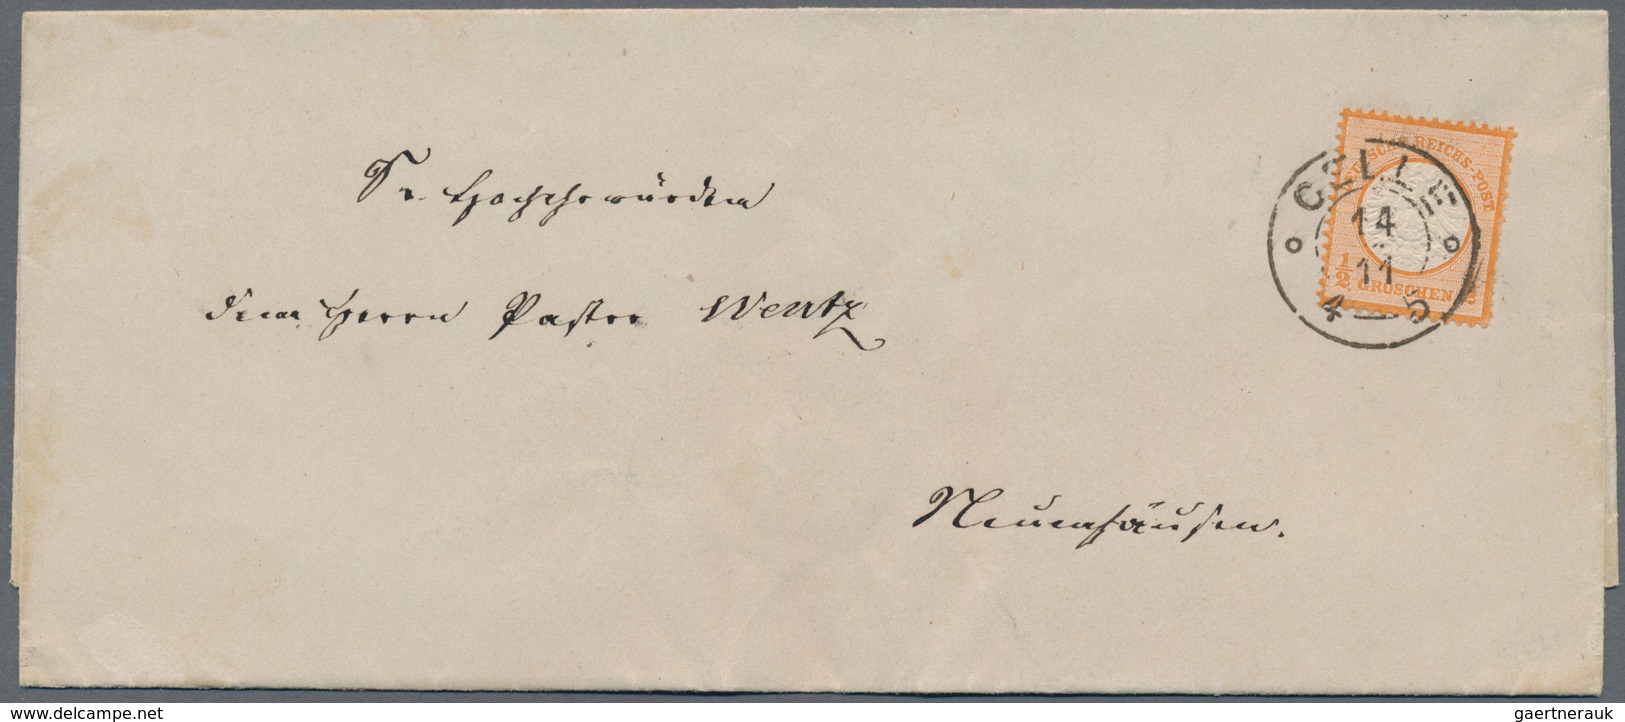 Sr. Hochehrwürden
dem Herrn Pastor Wentz
Neuenhäusen.
CELLE
14
11
4 — 5
DEUTSCHE REICHS-POST
1/2 GROSCHEN 1/2
www.delcampe.net
gaertnerauk